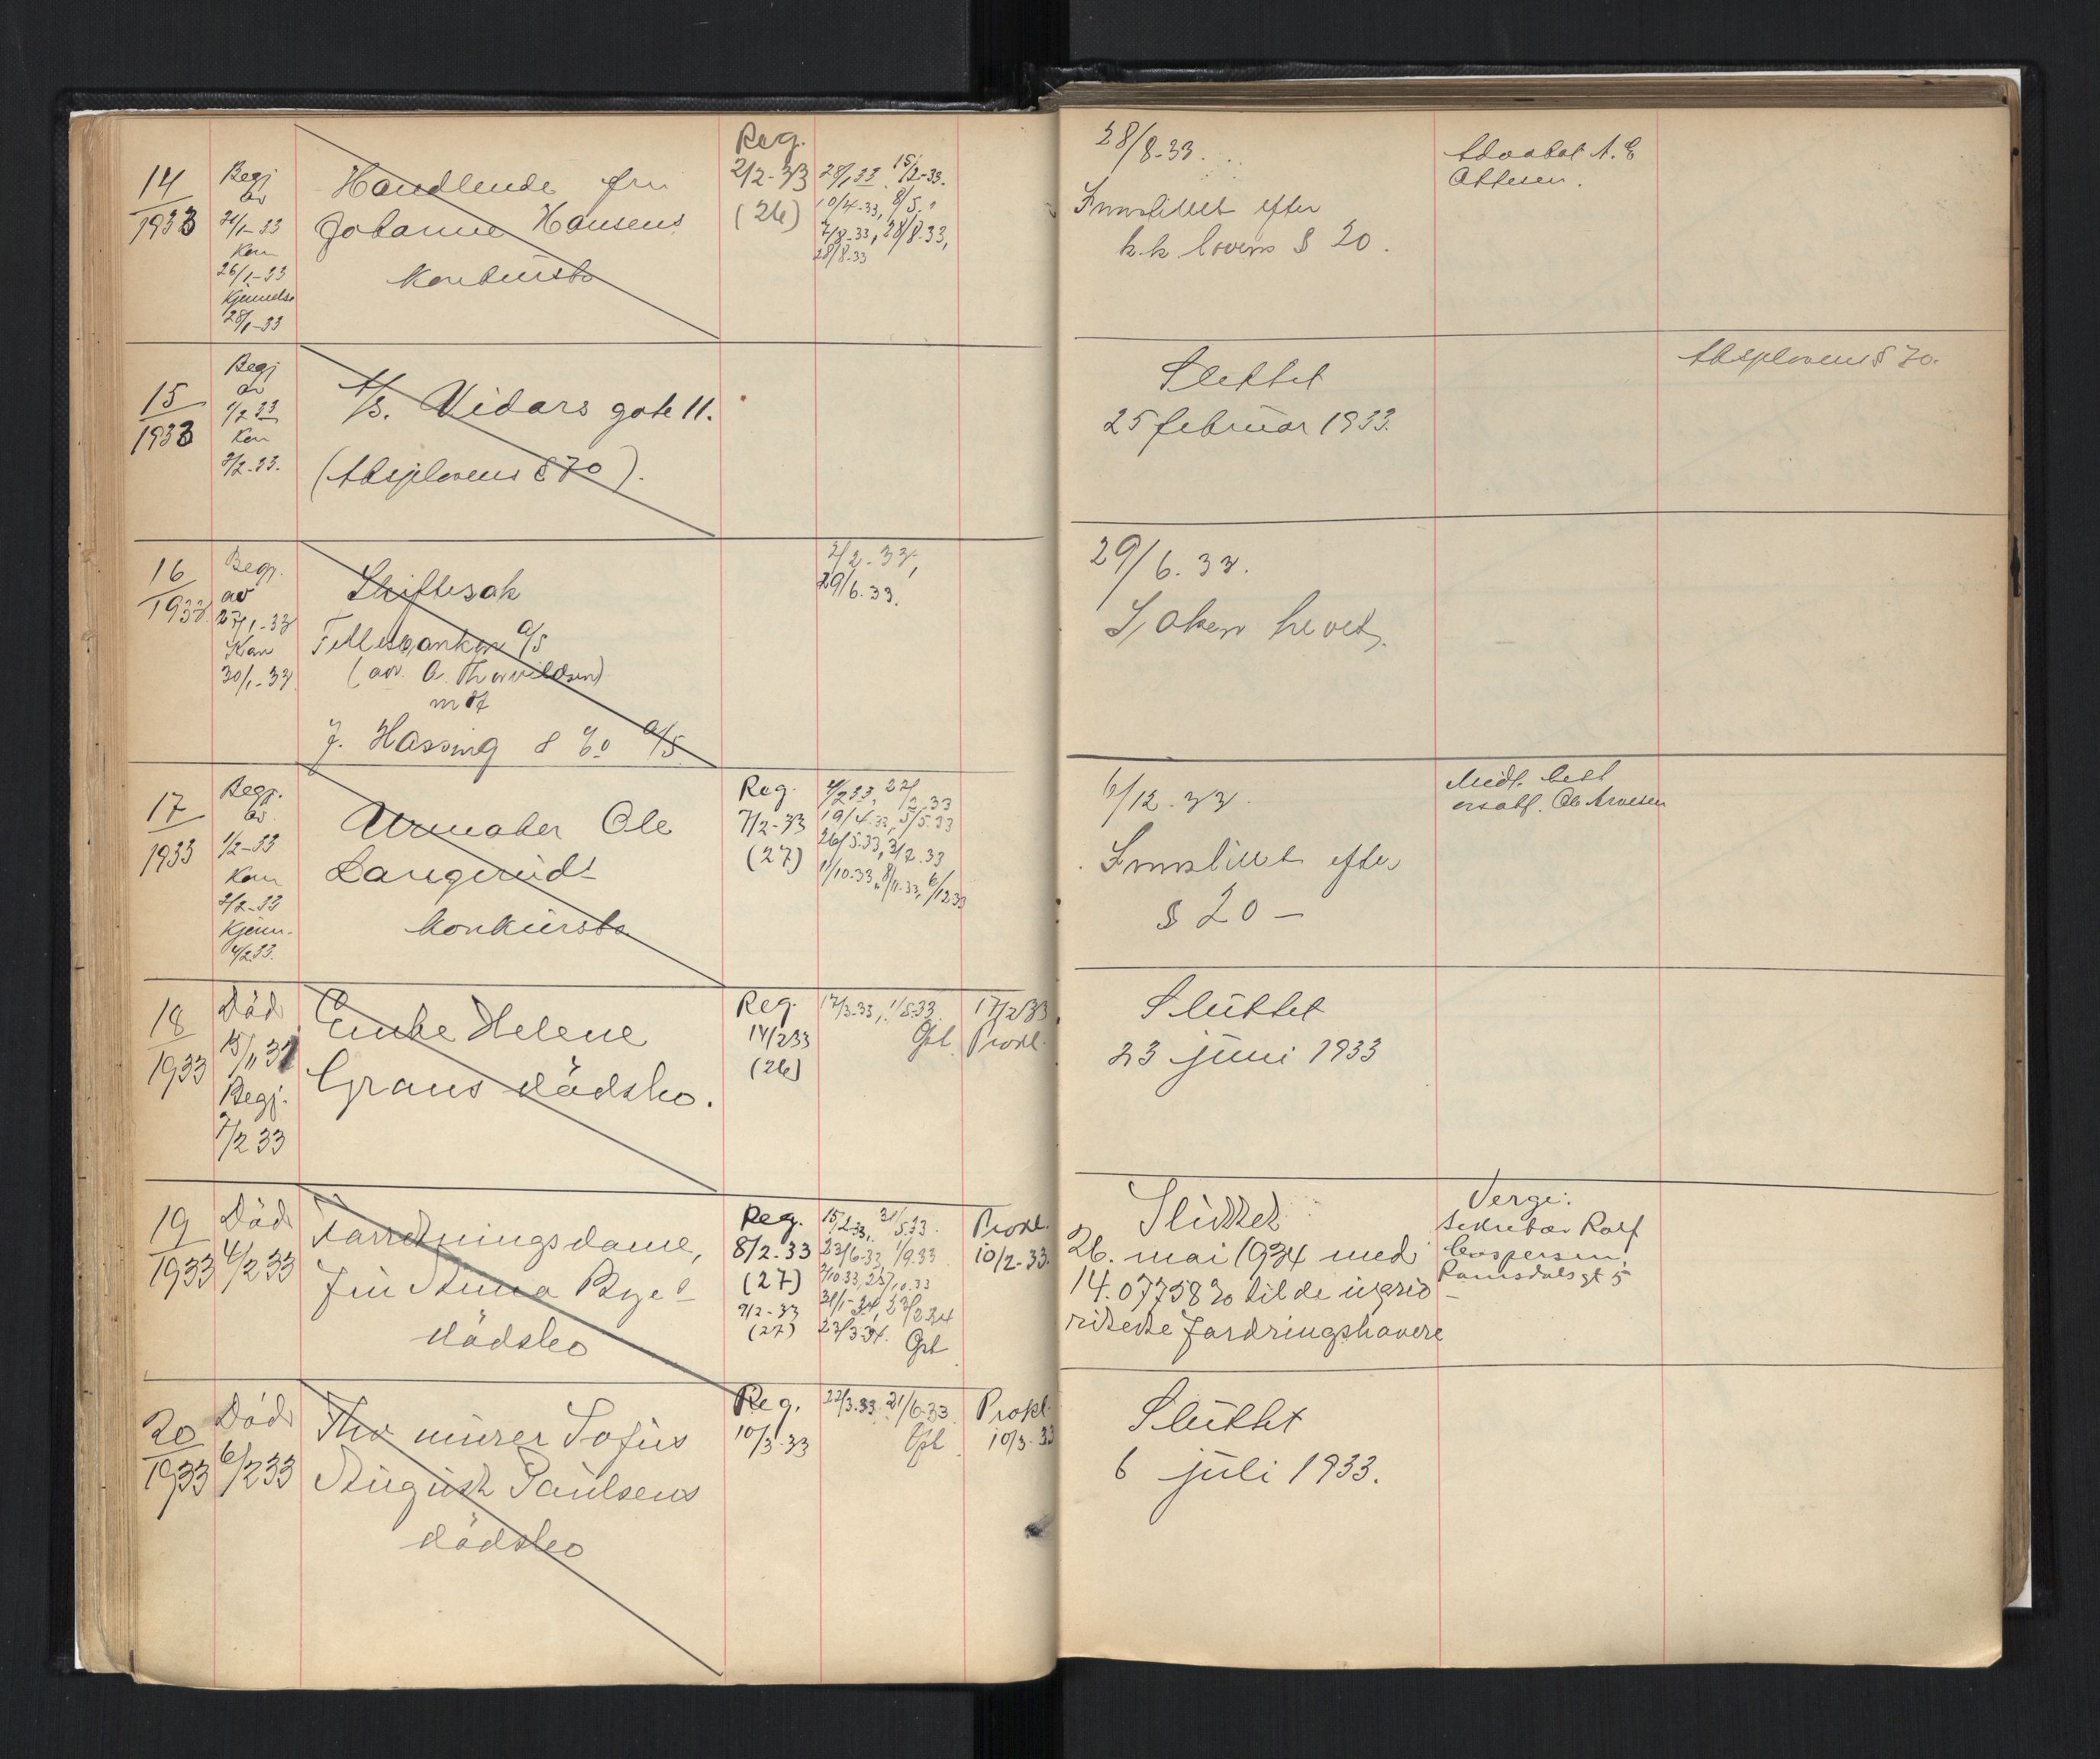 14
1933
Begj
av
24/1-33
Kon
26/1-33
Kjennelse
28/1-33
Handlende fru
Johanne Hansens
konkursbo
Reg.
2/2-33
(26)
28/1 33, 15/2-33.
10/4-33, 8/5.
7/8-33, 28/8-33,
28/8-33
28/8-33.
Innstillet efter
k.k. lovens § 20.
Advokat A. E
Ottesen.
15
1933
Begj
av
1/2 33
Kon
2/2-33.
A/S. Vidars gate 11.
(Aksjelovens § 70).
Sluttet
25 februar 1933.
Aksjelovens § 70.
16
1933
Begj.
av
27/1-33
Kon
30/1-33
Skiftesak
Fellesbanken A/S
(adv. A. Thorvildsen)
mot
J. Hassing & Co A/S
2/2-33,
29/6.33.
29/6.33.
Saken hevet.
17
1933
Begj.
av
1/2-33
Kon
2/2-33
Kjenn.
4/2 33.
Urmaker Ole
Langeruds
konkursbo
Reg.
7/2-33
(27)
4/2 33, 22/2.33
19/4.33, 5/5.33
26/5.33, 3/7.33
11/10-33, 8/11-33, 6/12 33
6/12.33.
Innstillet efter
§ 20 —
Midl. best
orsakf. Ole Arvesen
18
1933
Död
15/11 31
Begj.
7/2 33
Enke Helene
Grans dödsbo.
Reg.
14/2 33
(26)
17/3-33, 1/5.33.
Gpl.
17/2 33
Prokl.
Sluttet
23 juni 1933
19
1933
Död
4/2 33
Forretningsdame,
frk Anna Bye's
dödsbo
Reg.
8/2-33
(27)
9/2-33
(27)
15/2 33, 31/5.33.
23/6-33, 1/9.33
2/10.33, 25/10.33
31/1-34, 23/2 34
23/3-34. Gpl
Prokl.
10/2-33.
Sluttet
26. mai 1934 med
14.07758 % til de uprio-
riterte fordringshavere
Verge:
sekretær Rolf
Caspersen,
Ramsdals gt 5
20
1933
Död
6/2 33
Fhv murer Sofus
August Paulsens
dödsbo
Reg.
10/3-33
22/3.33. 21/6-33
Gpl
Prokl.
10/3-33
Sluttet
6 juli 1933.